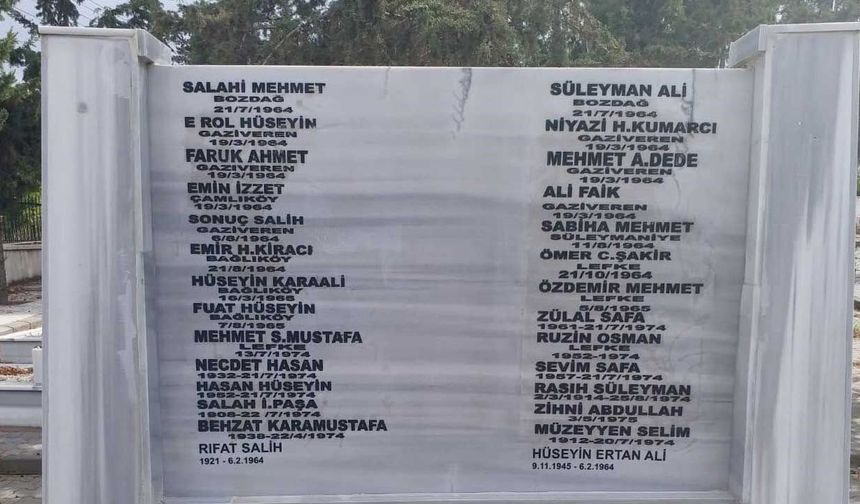 SALAHİ MEHMET
BOZDAĞ
21/7/1964
E ROL HÜSEYİN
GAZİVEREN
19/3/1964
FARUK AHMET
GAZİVEREN
19/3/1964
EMİN İZZET
ÇAMLIKÖY
19/3/1964
SONUÇ SALİH
GAZİVEREN
6/8/1964
EMİR H.KİRACI
BAĞLIKÖY
21/8/1964
HÜSEYİN KARAALİ
BAĞLIKÖY
16/3/1965
FUAT HÜSEYİN
BAĞLIKÖY
7/8/1965
MEHMET S.MUSTAFA
LEFKE
13/7/1974
NECDET HASAN
1932-21/7/1974
HASAN HÜSEYİN
1952-21/7/1974
SALAH İ.PAŞA
1908-22 /7/1974
BEHZAT KARAMUSTAFA
1938-22/4/1974
RIFAT SALİH
1921 - 6.2.1964
SÜLEYMAN ALİ
BOZDAĞ
21/7/1964
NİYAZİ H.KUMARCI
GAZİVEREN
19/3/1964
MEHMET A.DEDE
GAZİVEREN
19/3/1964
ALİ FAİK
GAZİVEREN
19/3/1964
SABİHA MEHMET
SÜLEYMANİYE
11/8/1964
ÖMER C.ŞAKİR
LEFKE
21/10/1964
ÖZDEMİR MEHMET
LEFKE
5/8/1965
ZÜLAL SAFA
1961-21/7/1974
RUZİN OSMAN
LEFKE
1952-1974
SEVİM SAFA
1957-21/7/1974
RASIH SÜLEYMAN
2/3/1914-25/8/1974
ZİHNİ ABDULLAH
3/5/1975
MÜZEYYEN SELİM
1912-20/7/1974
HÜSEYİN ERTAN ALİ
9.11.1945 - 6.2.1964